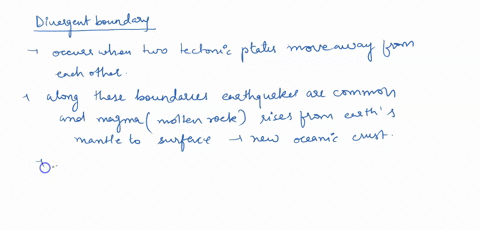 Divergent boundary
→ occurs when two tectonic plates move away from
each other.
→ along these boundaries earthquakes are common
and magma (molten rock) rises from earth's
mantle to surface → new oceanic crust.
→